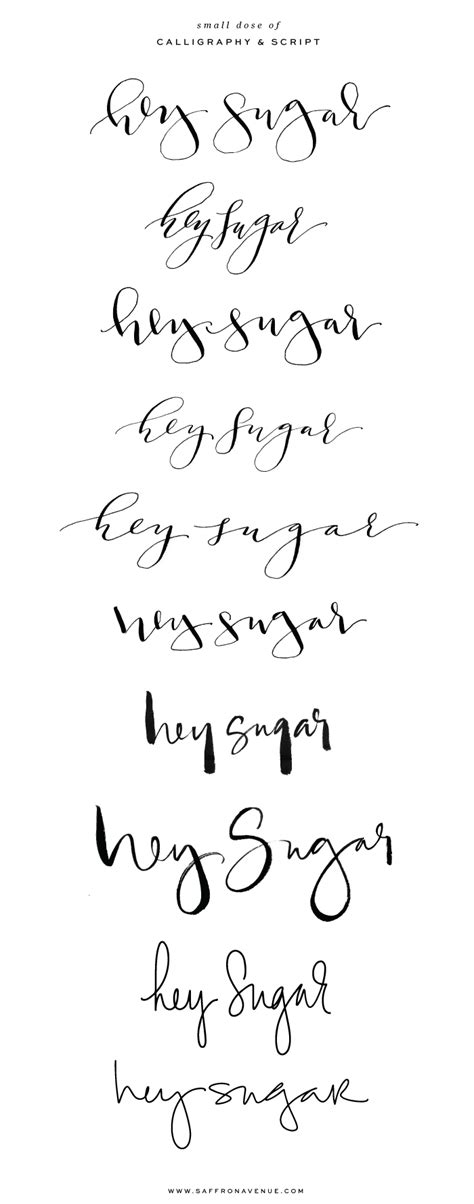 small dose of
CALLIGRAPHY & SCRIPT
hey sugar
hey sugar
hey sugar
hey sugar
hey sugar
hey sugar
hey sugar
hey Sugar
hey Sugar
hey sugaR
WWW.SAFFRONAVENUE.COM